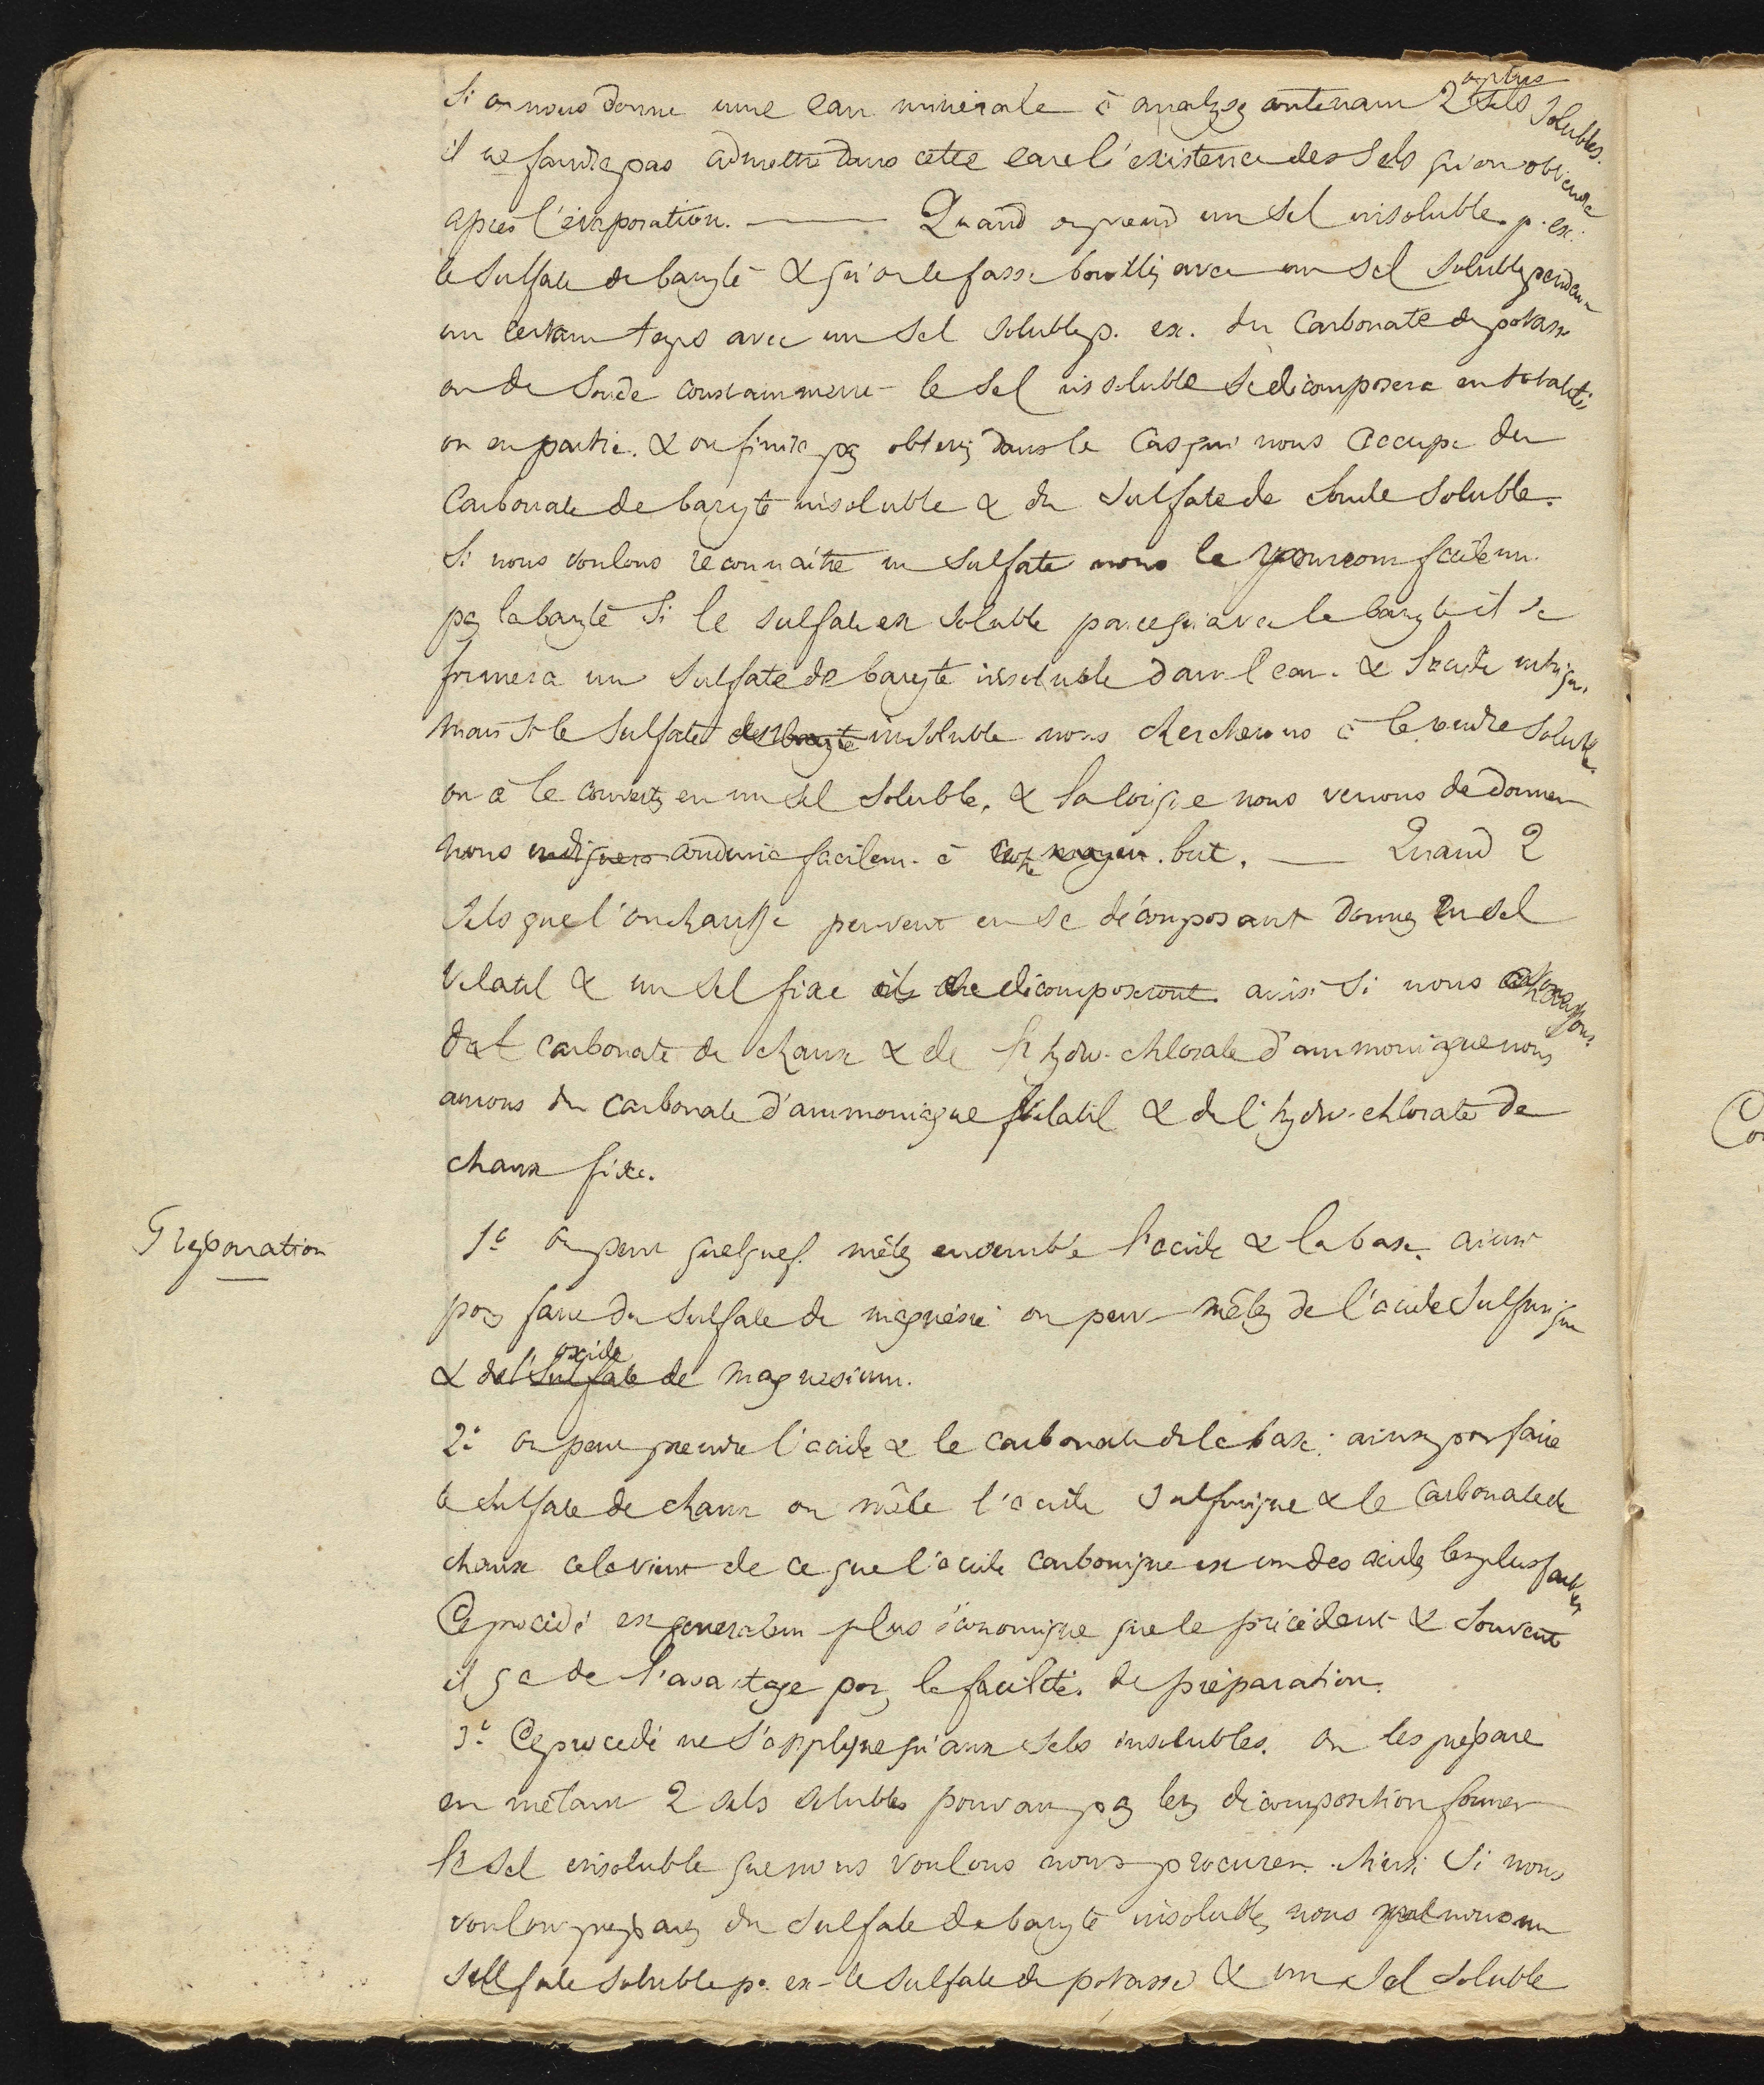 Si on nous donne une eau minérale à analyser contenant 2 ou plus sels solubles.
il ne faudra pas admettre dans cette eau l'existence des sels qu'on obtiendra
après l'évaporation. —— Quand on prend un sel insoluble p. ex.
le sulfate de baryte & qu'on le fasse bouillir avec un sel soluble pendant
un certain temps avec un sel soluble p. ex. du Carbonate de potasse
ou de soude constamment le sel insoluble se décomposera en totalité
ou en partie. & on finira par obtenir dans le cas qui nous occupe du
Carbonate de baryte insoluble & du sulfate de soude soluble.
Si nous voulons reconnaître un sulfate nous le pourrons facilem.
par la baryte si le sulfate est soluble parce qu'avec la baryte il se
formera un sulfate de baryte insoluble dans l'eau. & l'acide nitriqu.
mais si le sulfate est insoluble nous chercherons à le rendre soluble
ou à le convertir en un sel soluble, & la loi que nous venons de donner
nous conduira facilem. à notre but. —— Quand 2
sels que l'on chauffe peuvent en se décomposant donner un sel
volatil & un sel fixe ils se décomposeront. ainsi si nous chauffons
du carbonate de chaux & de l'hydro-chlorate d'ammoniaque nous
aurons du carbonate d'ammoniaque volatil & de l'hydro-chlorate de
chaux fixe.
Preparation
1° On peut quelquef. mêler ensemble l'acide & la base. ainsi
pour faire du sulfate de magnésie on peut mêler de l'acide sulfurique
& de l'oxide de magnesium.
2° on peut prendre l'acide & le carbonate de la base: ainsi pour faire
le sulfate de chaux on mêle l'acide sulfurique & le Carbonate de
chaux cela vient de ce que l'acide carbonique est un des acides les plus faibles
Ce procédé est generalem plus économique que le précédent & souvent
il y a de l'avantage pour la facilité de préparation.
3° Ce procedé ne s'applique qu'aux sels insolubles. on les prépare
en mêlant 2 sels solubles pouvant par leur décomposition former
le sel insoluble que nous voulons nous procurer. Ainsi si nous
voulons préparer du sulfate de baryte insoluble, nous prendrons un
sulfate soluble p. ex. le sulfate de potasse & un sel soluble